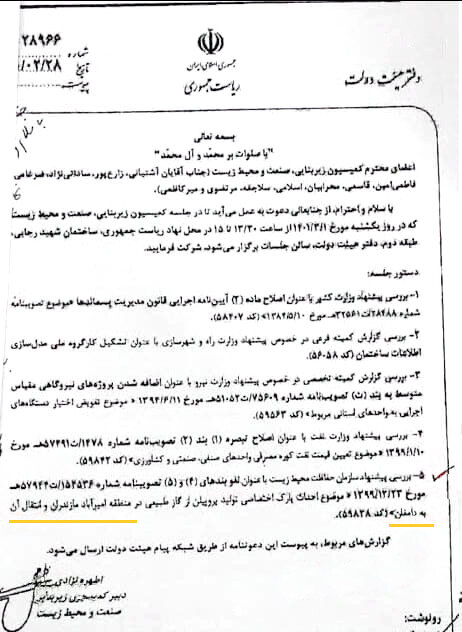 ۲۸۹۶۶
شماره
۱/۰۲/۲۸
تاریخ
پیوست
جمهوری اسلامی ایران
ریاست جمهوری
دفتر هیئت دولت
بسمه تعالی
"با صلوات بر محمّد و آل محمّد"
اعضای محترم کمیسیون زیربنایی، صنعت و محیط زیست (جناب آقایان آشتیانی، زارع‌پور، ساداتی‌نژاد، ضرغامی
فاطمی‌امین، قاسمی، محرابیان، اسلامی، سلاجقه، مرتضوی و میرکاظمی)
با سلام و احترام، از جنابعالی دعوت به عمل می‌آید تا در جلسه کمیسیون زیربنایی، صنعت و محیط زیست
که در روز یکشنبه مورخ ۱۴۰۱/۳/۱ از ساعت ۱۳/۳۰ تا ۱۵ در محل نهاد ریاست جمهوری، ساختمان شهید رجایی،
طبقه دوم، دفتر هیئت دولت، سالن جلسات برگزار می‌شود، شرکت فرمایید.
دستور جلسه:
۱- بررسی پیشنهاد وزارت کشور با عنوان اصلاح ماده (۲) آیین‌نامه اجرایی قانون مدیریت پسماندها «موضوع تصویبنامه
شماره ۲۸۴۸۸/ت۳۲۵۶۱هـ مورخ ۱۳۸۴/۵/۱۰» (کد ۵۸۴۰۷)
۲- بررسی گزارش کمیته فرعی در خصوص پیشنهاد وزارت راه و شهرسازی با عنوان تشکیل کارگروه ملی مدل‌سازی
اطلاعات ساختمان (کد ۵۶۰۵۸)
۳- بررسی گزارش کمیته تخصصی در خصوص پیشنهاد وزارت نیرو با عنوان اضافه شدن پروژه‌های نیروگاهی مقیاس
متوسط به بند (ث) تصویبنامه شماره ۷۵۶۰۹/ت۵۱۰۵۲هـ مورخ ۱۳۹۴/۶/۱۱ « موضوع تفویض اختیار دستگاه‌های
اجرایی به واحدهای استانی مربوط» (کد ۵۹۵۶۳)
۴- بررسی پیشنهاد وزارت نفت با عنوان اصلاح تبصره (۱) بند (۲) تصویبنامه شماره ۱۴۷۸/ت۵۷۴۹۱هـ مورخ
۱۳۹۹/۱/۱۰ «موضوع تعیین قیمت نفت کوره مصرفی واحدهای صنفی، صنعتی و کشاورزی» (کد ۵۹۸۴۲)
۵- بررسی پیشنهاد سازمان حفاظت محیط زیست با عنوان لغو بندهای (۴) و (۵) تصویبنامه شماره ۱۵۴۵۳۶/ت۵۷۹۴۴هـ
مورخ ۱۳۹۹/۱۲/۲۳ « موضوع احداث پارک اختصاصی تولید پروپیلن از گاز طبیعی در منطقه امیرآباد مازندران و انتقال آن
به دامغان» (کد ۵۹۸۳۸)
گزارش‌های مربوط، به پیوست این دعوتنامه از طریق شبکه پیام هیئت دولت ارسال می‌شود.
دبیر کمیسیون زیربنایی
صنعت و محیط زیست
رونوشت: